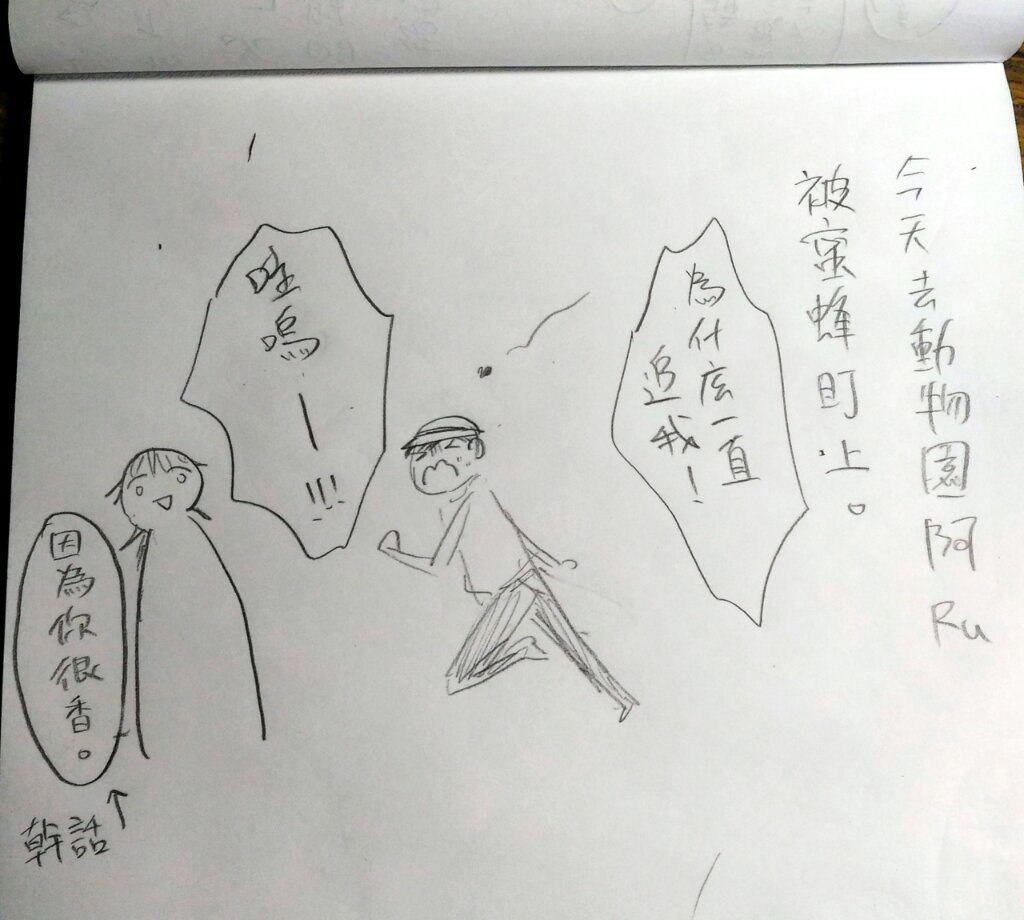 今天去動物園阿Ru
被蜜蜂盯上。
為什庅一直
追我!
哇嗚—!!!
因為你很香。
幹話